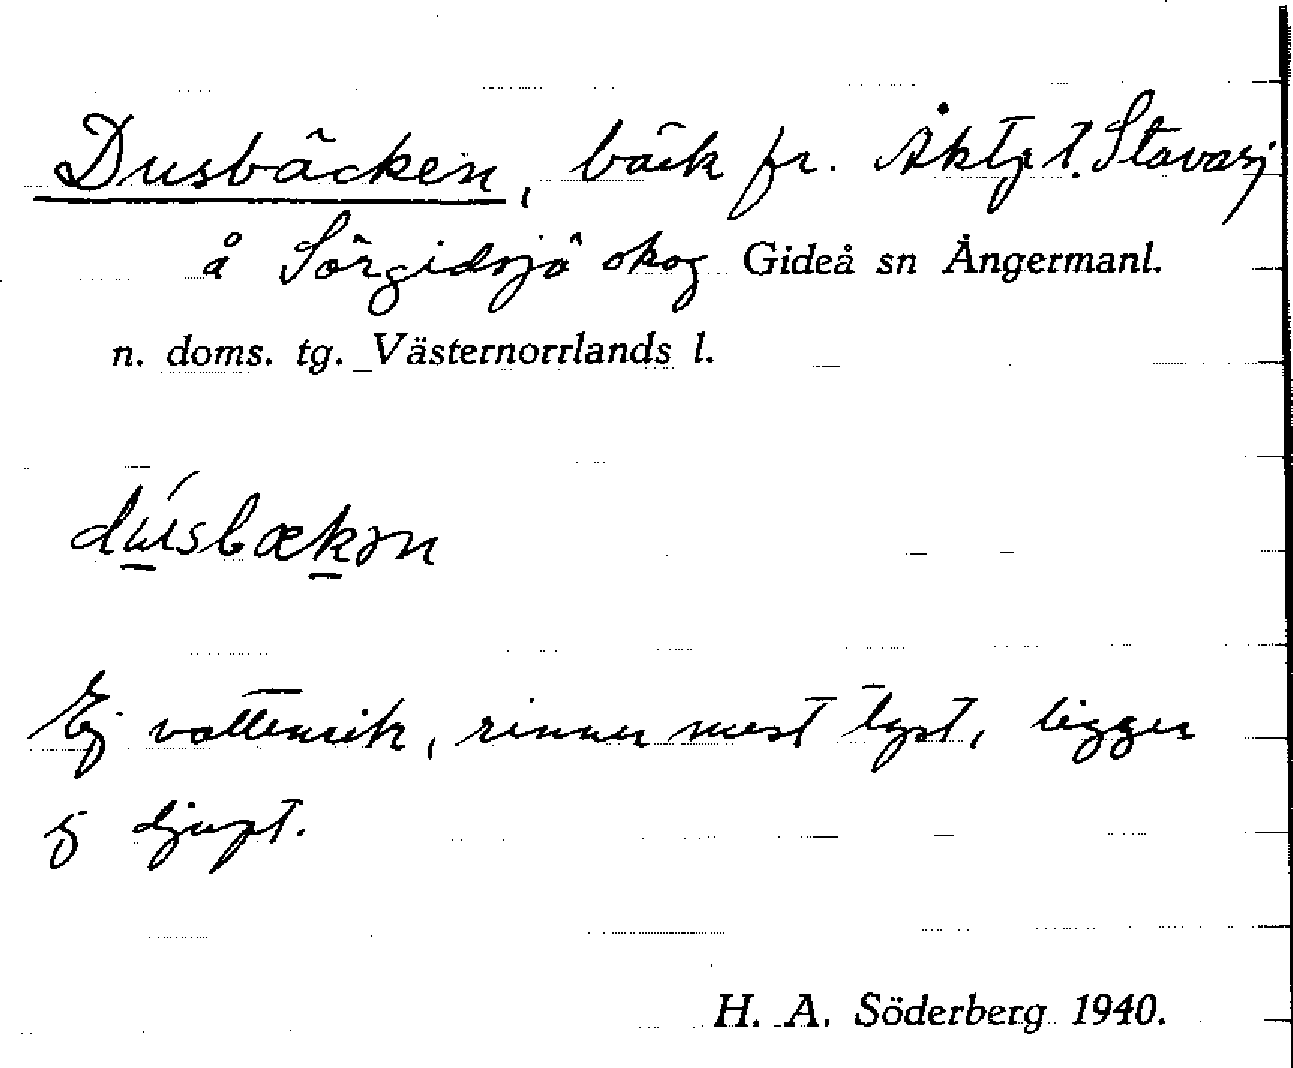 Dusbäcken, bäck fr. Åktj. t. Stavasj
å Sörgidsjö skog Gideå sn Ångermanl.
n. doms. tg. Västernorrlands l.
dúsbækən
Ej vattenrik, rinner mest tyst, ligger
ej djupt.
H. A. Söderberg 1940.